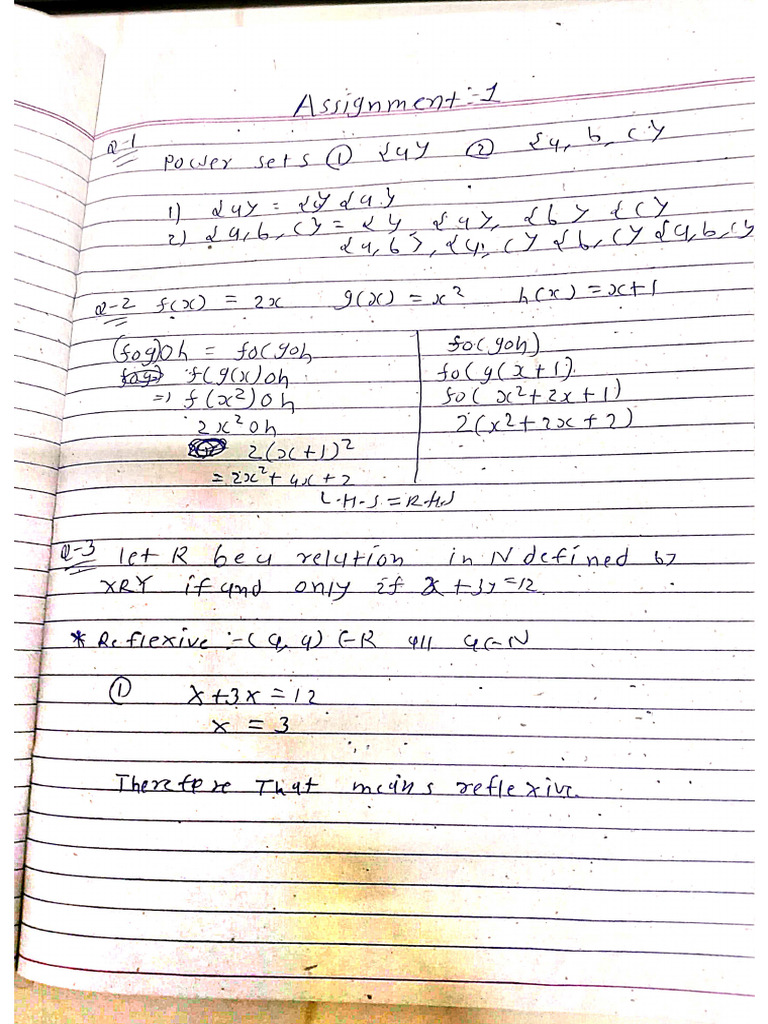 Assignment:-1
Q-1
Power sets ① {a} ② {a, b, c}
1) {a} = {} {a}
2) {a, b, c} = {}, {a}, {b} {c}
{a, b}, {a, c} {b, c} {a, b, c}
Q-2 f(x) = 2x g(x) = x² h(x) = x+1
(fog)oh = fo(goh
f(g(x)oh
=) f(x²)oh
2x²oh
2(x+1)²
= 2x²+4x+2
fo(goh)
fo(g(x+1)
fo(x²+2x+1)
2(x²+2x+2)
L.H.S = R.H.S
Q-3 let R be a relation in N defined by
XRY if and only if x+3y=12.
* Reflexive :- (a, a) ∈R all a∈N
① x+3x=12
x = 3
Therefore That means reflexive.